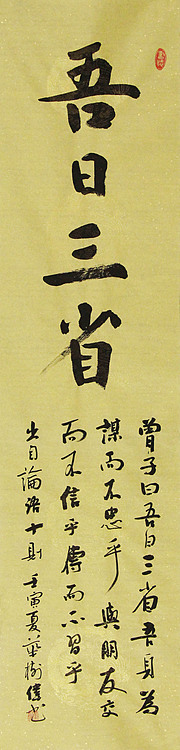 吾日三省
曾子曰吾日三省吾身為
謀而不忠乎與朋友交
而不信乎傳而不習乎
出自論語十則 壬寅夏 樹偉书